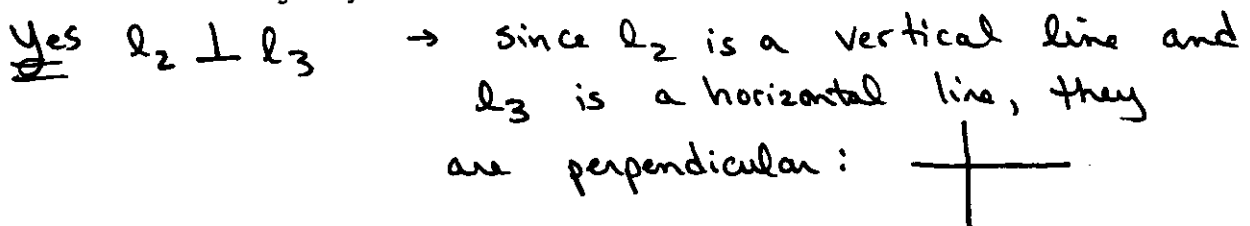 Yes l₂ ⊥ l₃ → since l₂ is a vertical line and
l₃ is a horizontal line, they
are perpendicular: